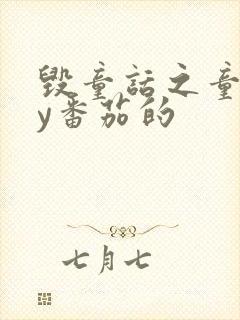 毁童话之童
y番茄的
七月七